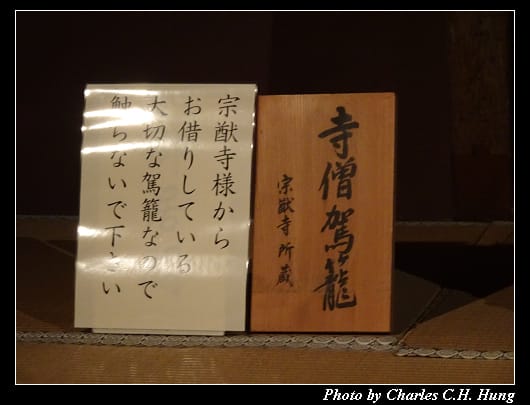 寺僧駕籠
宗猷寺所蔵
宗猷寺様から
お借りしている
大切な駕籠なので
触らないで下さい
Photo by Charles C.H. Hung